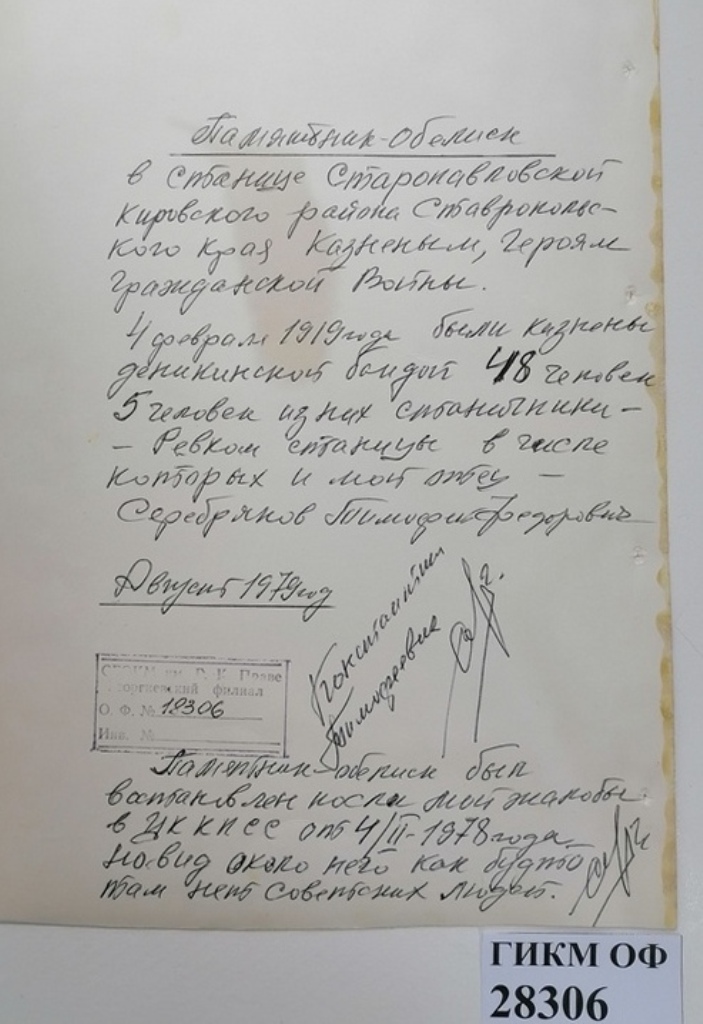 Памятник-обелиск
в станице Старопавловской
Кировского района Ставрополь-
ского края Казненым, Героям
Гражданской Войны.
4 февраля 1919 года были казнены
деникинской бандой 48 человек
5 человек из них станичники -
- Ревком станицы в числе
которых и мой отец -
Серебряков Тимофей Федорович
Август 1979 год
Константин
Тимофеевич
СГОКМ им. Г. К. Праве
Георгиевский филиал
О. Ф. № 19306
Инв. №
Памятник-обелиск был
востановлен после мой жалобы
в ЦК КПСС от 4/II-1978 года
на вид около него как будто
там нет советских людей.
ГИКМ ОФ
28306